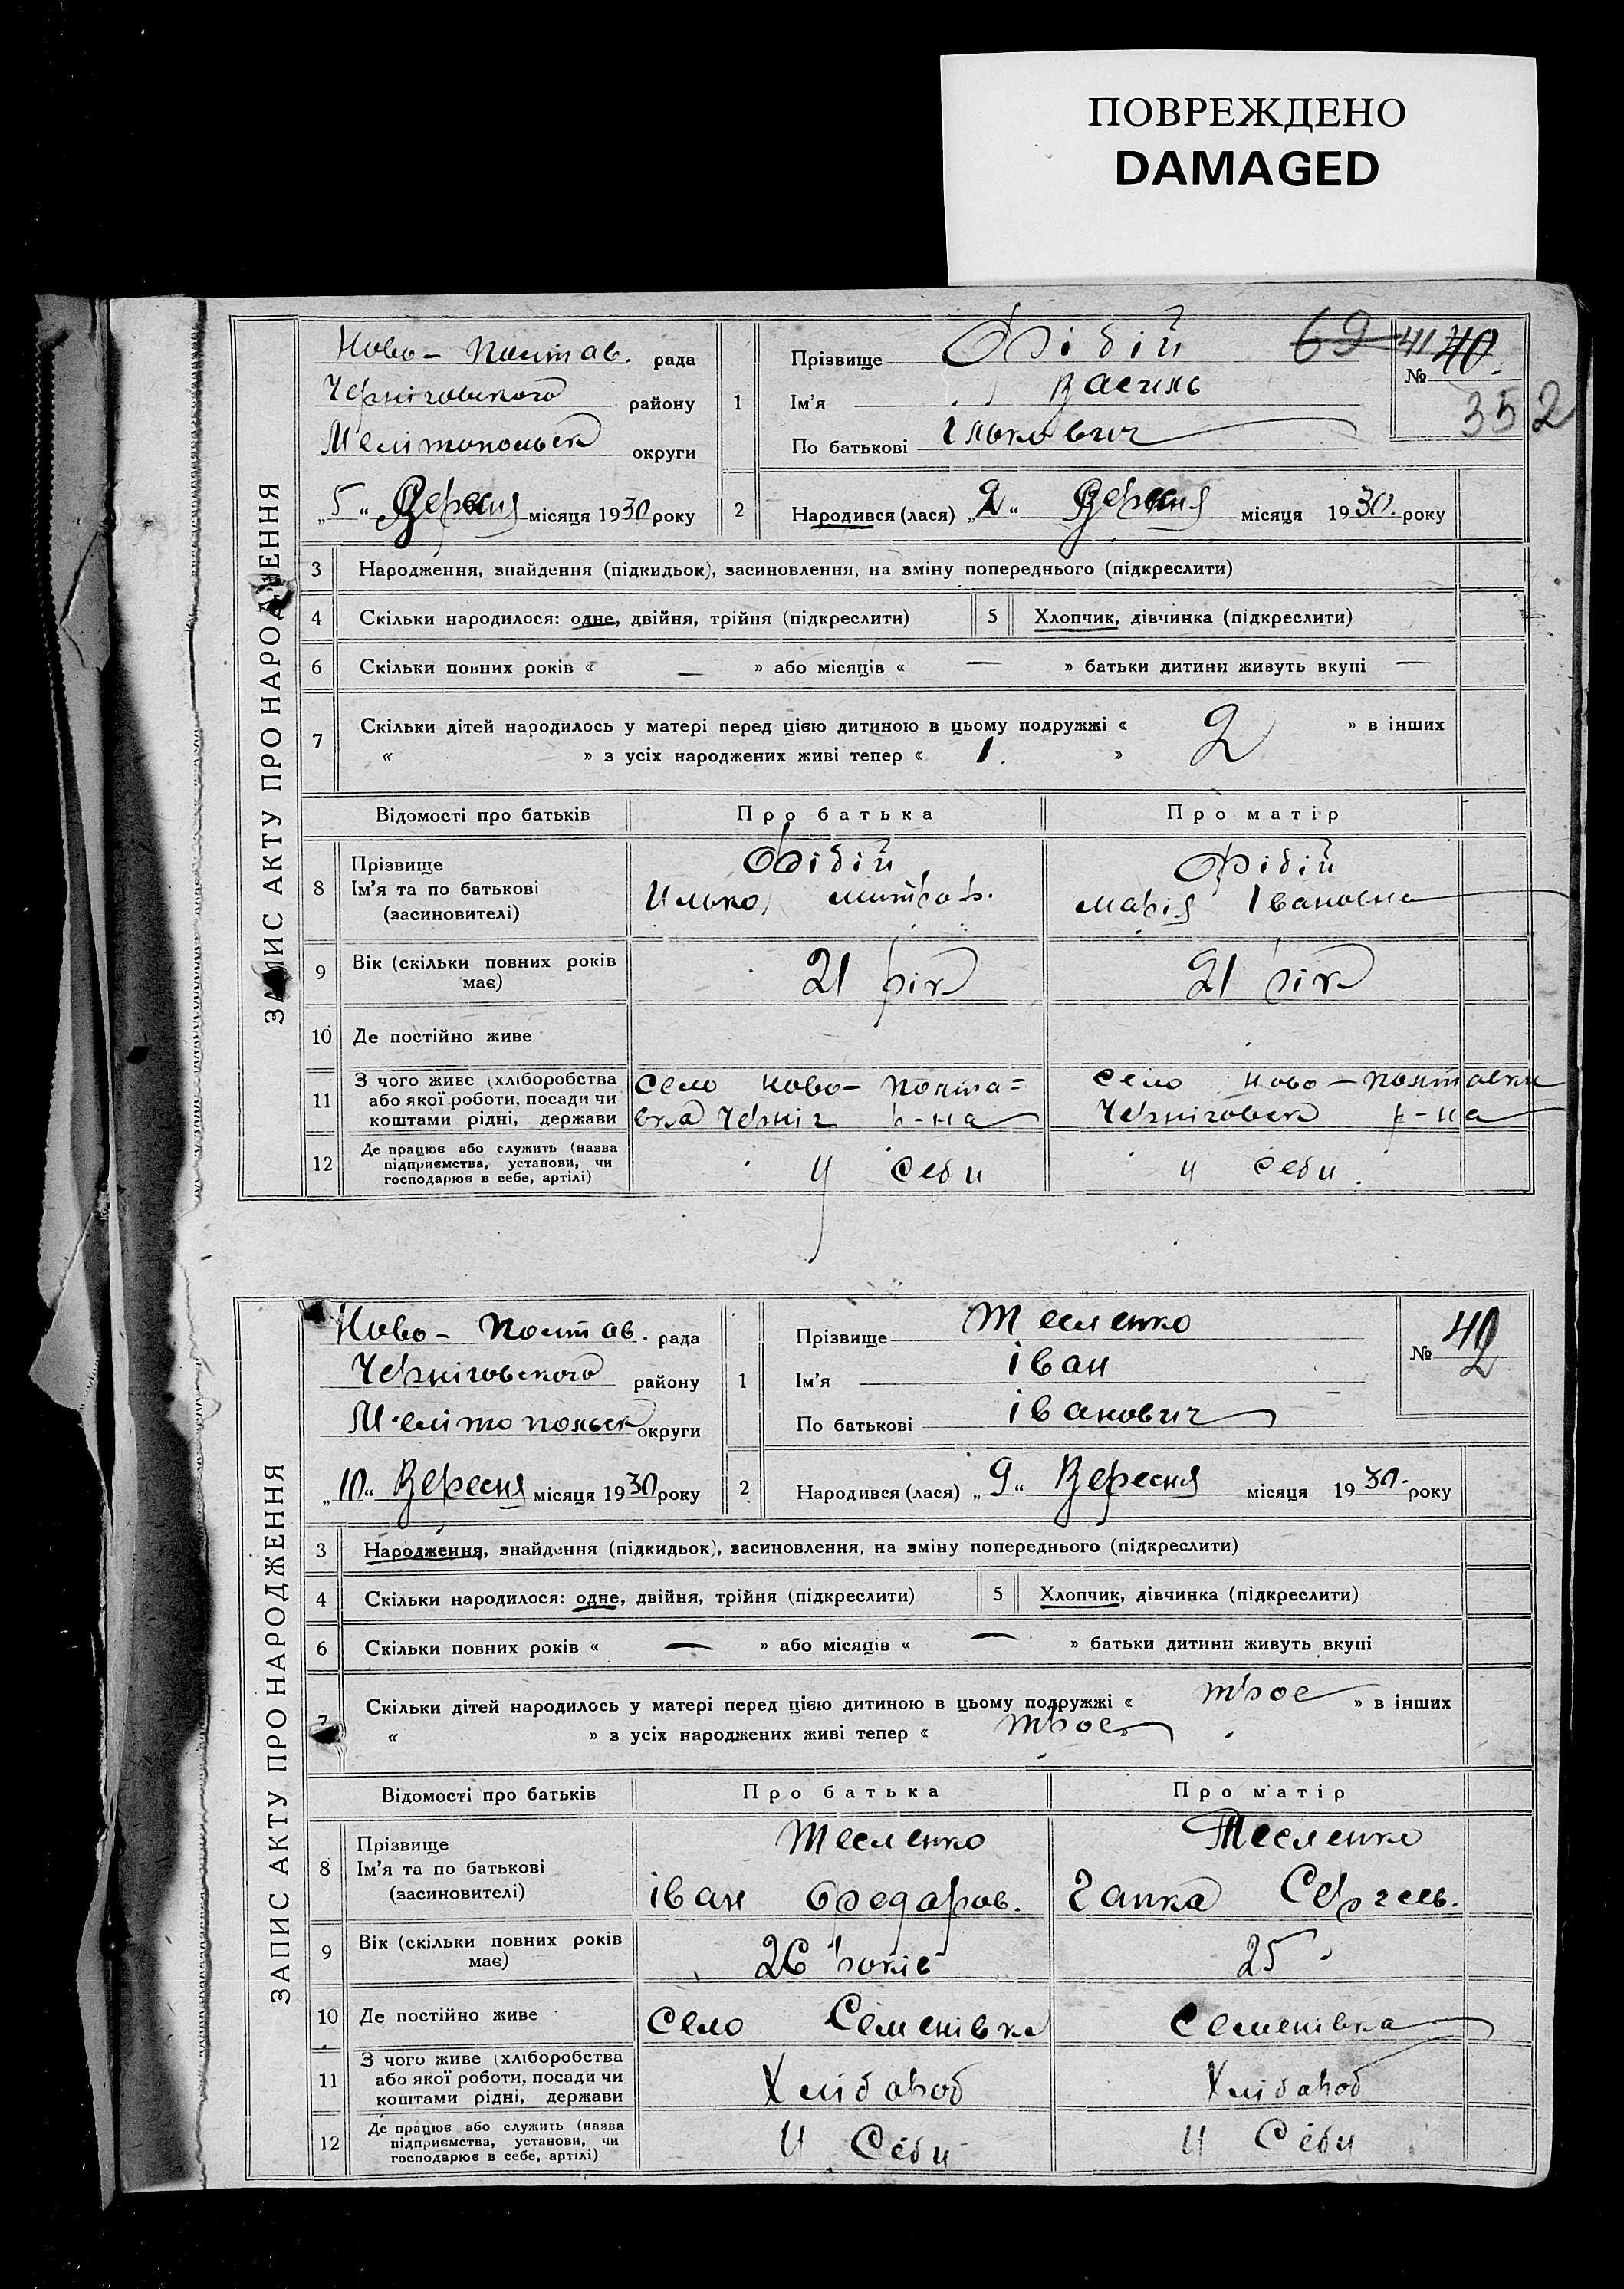 ПОВРЕЖДЕНО
DAMAGED
ЗАПИС АКТУ ПРО НАРОДЖЕННЯ
Ново – Полтав. рада
Чернiговського району
Мелiтопольск округи
„5“ Вересня місяця 1930 року
1
Прізвище Фiбiй
Ім'я Василь
По батькові Iлькович
69 41 40.
№
352
2 Народився (лася) „2“ Вересня місяця 1930. року
3 Народження, знайдення (підкидьок), засиновлення, на зміну попереднього (підкреслити)
4 Скільки народилося: одне, двійня, трійня (підкреслити) 5 Хлопчик, дівчинка (підкреслити)
6 Скільки повних років « — » або місяців « — » батьки дитини живуть вкупі —
7 Скільки дітей народилось у матері перед цією дитиною в цьому подружжі « 2 » в інших
« » з усіх народжених живі тепер « 1. »
Відомості про батьків Про батька Про матір
8 Прізвище Фiбiй Фiбiй
Ім'я та по батькові Илько Митроф. Марiя Iвановна
(засиновителі)
9 Вік (скільки повних років має) 21 рiк 21 рiк
10 Де постійно живе
11 З чого живе (хліборобства або якої роботи, посади чи коштами рідні, держави
село Ново – Полта=
вка Чернiг р-на
село Ново – Полтавки
Чернiговск р-на
12 Де працює або служить (назва підприємства, установи, чи господарює в себе, артілі) у себи у себи.
ЗАПИС АКТУ ПРО НАРОДЖЕННЯ
Ново – Полтав. рада
Чернiговського району
Мелiтопольск округи
„10“ Вересня місяця 1930 року
1
Прізвище Тесленко
Ім'я iван
По батькові iванович
№ 42
2 Народився (лася) „9“ Вересня місяця 1930. року
3 Народження, знайдення (підкидьок), засиновлення, на зміну попереднього (підкреслити)
4 Скільки народилося: одне, двійня, трійня (підкреслити) 5 Хлопчик, дівчинка (підкреслити)
6 Скільки повних років « — » або місяців « — » батьки дитини живуть вкупі
7 Скільки дітей народилось у матері перед цією дитиною в цьому подружжі « трое » в інших
« » з усіх народжених живі тепер « трое »
Відомості про батьків Про батька Про матір
8 Прізвище Тесленко Тесленко
Ім'я та по батькові iван Федаров. Ганка Сергеев.
(засиновителі)
9 Вік (скільки повних років має) 26 рокiв 25
10 Де постійно живе село Семенiвка Семенiвка
11 З чого живе (хліборобства або якої роботи, посади чи коштами рідні, держави Хлiбароб Хлiбароб
12 Де працює або служить (назва підприємства, установи, чи господарює в себе, артілі) у себи у себи